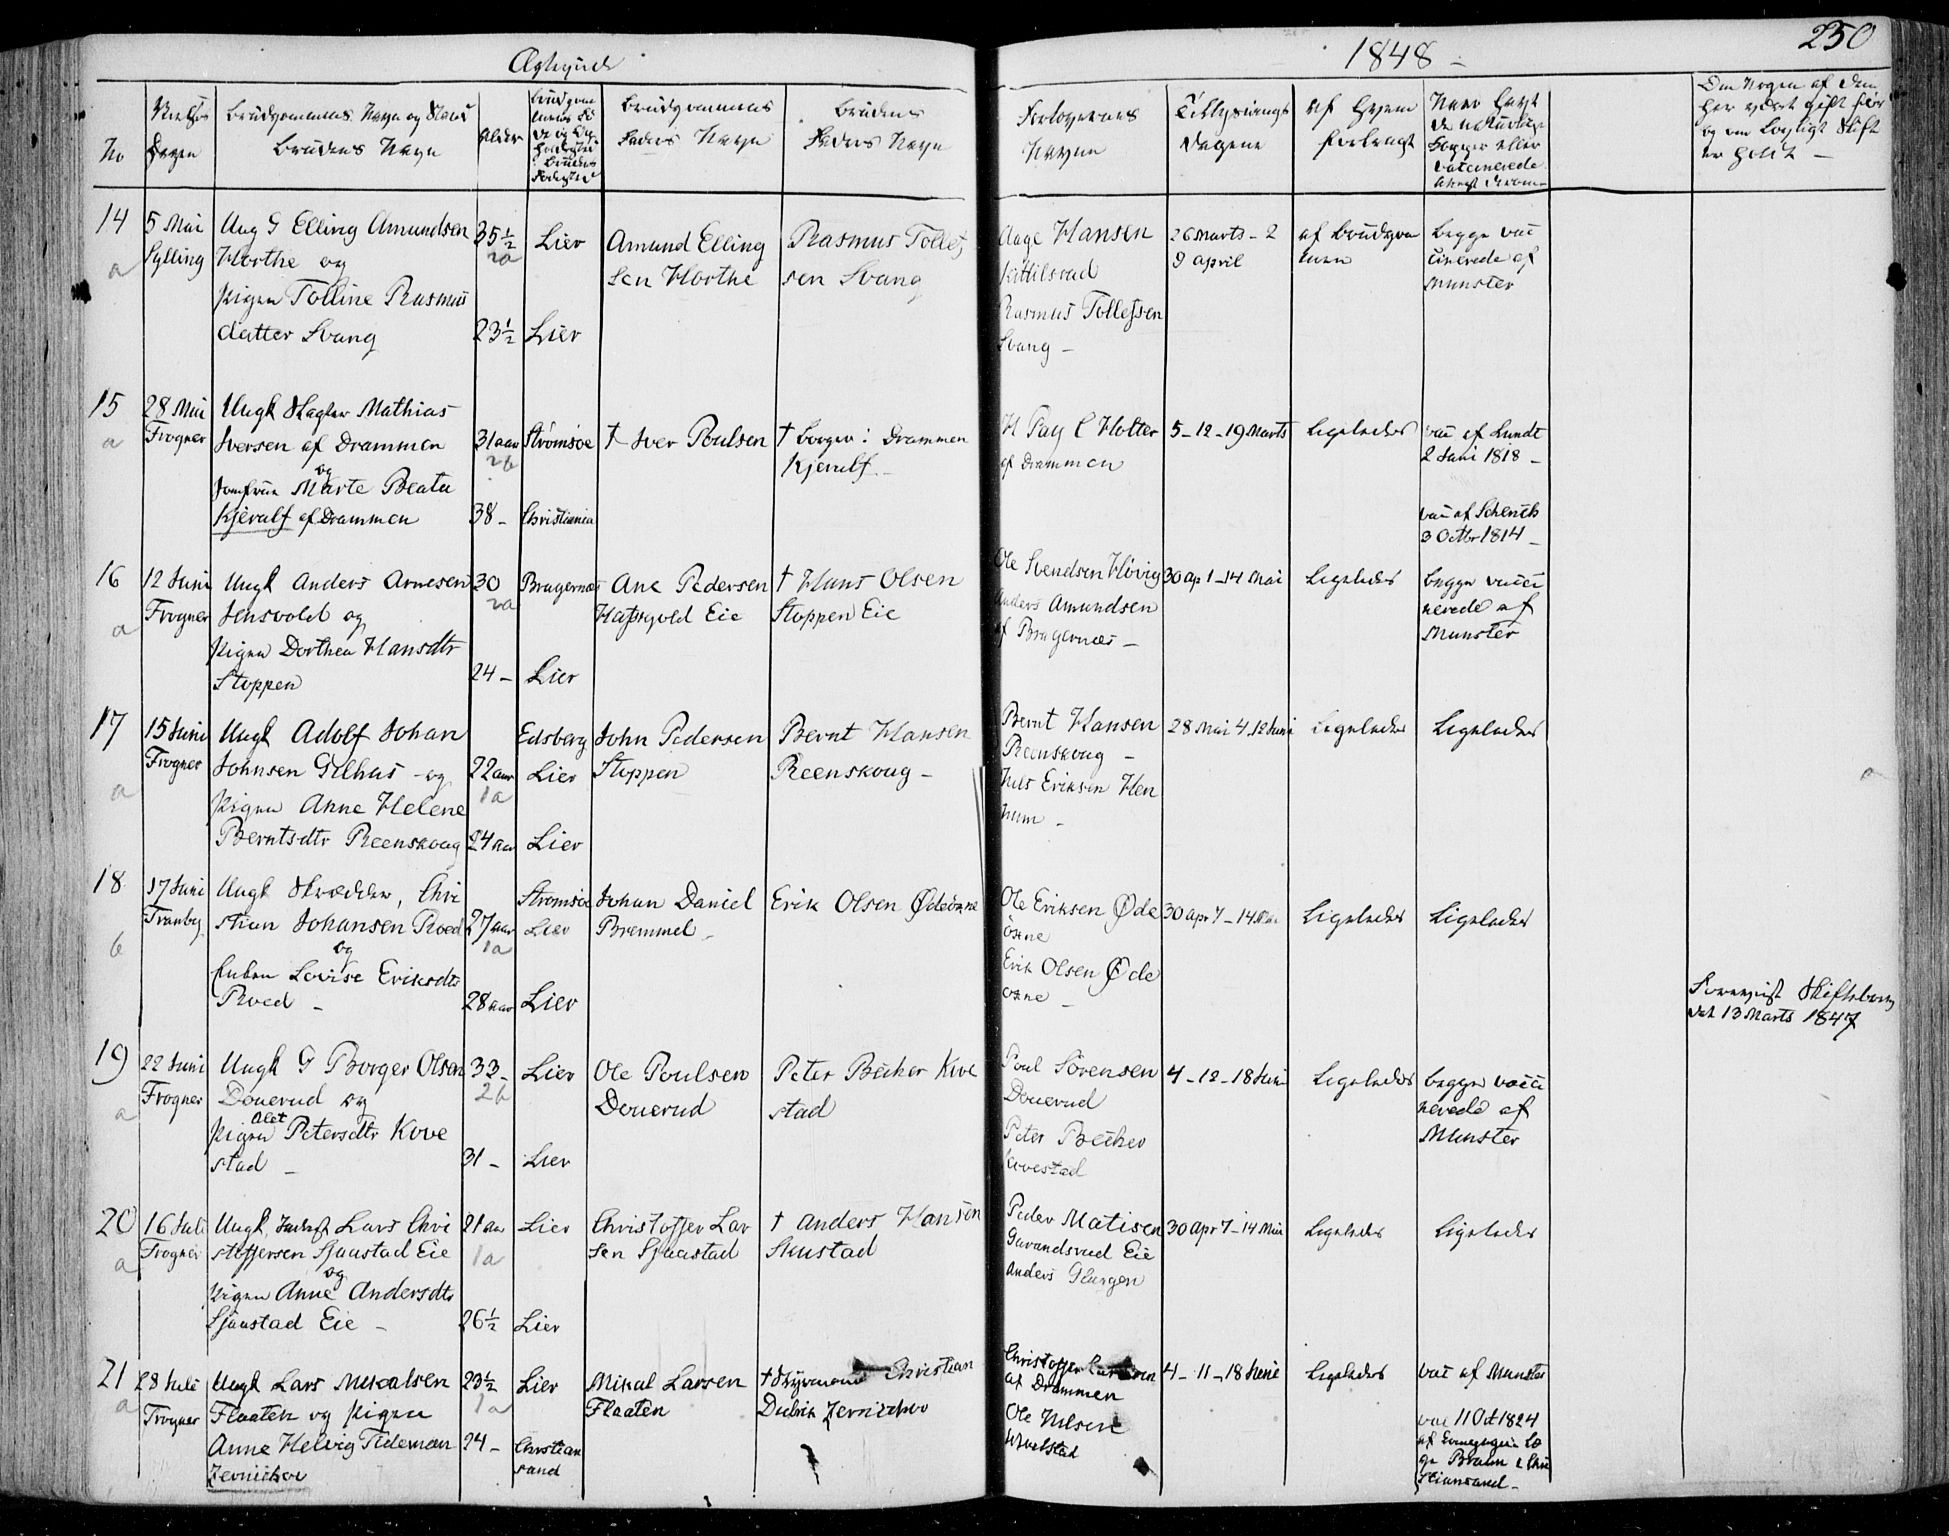 1848 -
250
No
Brudgommens Navn og Stand
Brudens Navn
Alder
Brudgommens
Faders Navn
Brudens
Faders Navn
Forlovernes
Navne
Tillysnings
Dagene
af hvem
forlangt
14
a
5 Mai
Sylling
Ung G Elling Amundsen
Horthe og
Pigen Tolline Rasmus
datter Svang
35 1/2
2a
23 1/2
Lier
Lier
Amund Elling
sen Horthe
Rasmus Tollef
sen Svang
Aage Hansen
Kittilsrud
Rasmus Tollefsen
Svang -
26 Marts - 2
9 April
af Brudgom
men
begge vac
cinerede af
Munster
15
a
28 Mai
Frogner
Ungk Slagter Mathias
Iversen af Drammen
og
Jomfrue Marte Beata
Kjerulf af Drammen
31 aar
2b
38 -
Strømsøe
Christiania
† Iver Poulsen
† Borger i Drammen
Kjerulf -
H Pay C Holter
af Drammen
5 - 12 - 19 Marts
Ligeledes
vac af Lundt
2 Juni 1818 -
vac af Schench
3 Octbr 1814 -
16
a
12 Juni
Frogner
Ungk Anders Arnesen
Jensvold og
Pigen Dorthea Hansdtr
Stoppen
30
2a
24 -
Bragernæs
Lier
Ane Pedersen
Hassgold Eie
† Hans Olsen
Stoppen Eie
Ole Svendsen Høvig
Anders Amundsen
af Bragernæs -
30 ap 1 - 14 Mai
Ligeledes
begge vacci
nerede af
Munster
17
a
15 Juni
Frogner
Ungk Adolf Johan
Johnsen Gilhus - og
Pigen Anne Helene
Berntsdtr Reenskoug
22 aar
1a
24 aar
Edsberg
Lier
Lier
John Pedersen
Stoppen
Bernt Hansen
Reenskoug -
Bernt Hansen
Reenskoug -
Nils Eriksen Hen
num -
28 Mai 4 12 Juni
Ligeledes
Ligeledes
a
18
b
17 Juni
Tranby
Ungk Skrædder, Chri
stian Johansen Roed
og
Enken Lovise Eriksdtr
Roed -
27 aar
1a
28 aar
Strømsøe
Lier
Lier
Johan Daniel
Bremmel -
Erik Olsen Ødeöxne
Ole Eriksen Øde
öxne
Erik Olsen Øde
öxne -
30 apr 7 - 14 Mai
Ligeledes
Ligeledes
Foreviist Skiftebrev
dat 13 Marts 1847
19
a
22 Juni
Frogner
Ungk G Borger Olsen
Douerud og
Alet
Pigen Petersdtr Kove
stad -
33 -
2b
31 -
Lier
Lier
Ole Poulsen
Douerud
Peter Becher Kove
stad
Poul Sörensen
Douerud
Peter Becher
Kovestad
4 - 12 - 18 Juni
Ligeledes
begge vacci
nerede af
Munster
20
a
16 Juli
Frogner
Ungk Inderst Lars Chri
stoffersen Sjaastad Eie
og
Pigen Anne Andersdtr
Sjaastad Eie -
21 aar
1a
26 1/2
Lier
Lier
Christoffer Lar
sen Sjaastad
† Anders Hansen
Stenstad
Peder Matisen
Gavandsrud Eie
Anders Glurgen
30 apr 7 - 14 Mai
Ligeledes
Ligeledes
21
a
28 Juli
Frogner
Ungk Lars Mikalsen
Flaaten og Pigen
Anne Helvig Tideman
Zernichov
23 1/2
1a
24 -
Lier
Christian
sand
Mikal Larsen
Flaaten
† Styrmand Christian
Didrik Zernichov
Christoffer
af Drammen
Ole Nilsen
4 - 11 - 18 Juni
Ligeledes
vac af Munster
vac 11 Oct 1824
Braun i Chri
stiansand -